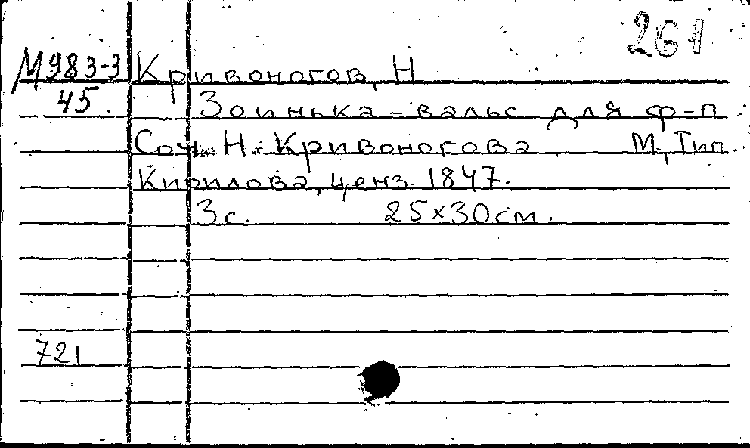 261
М983-3 Кривоногов, Н
45. Зоинька-вальс для ф-п
Соч. Н. Кривоногова М, Тип.
Кирилова, ценз 1847.
3с. 25х30см.
721